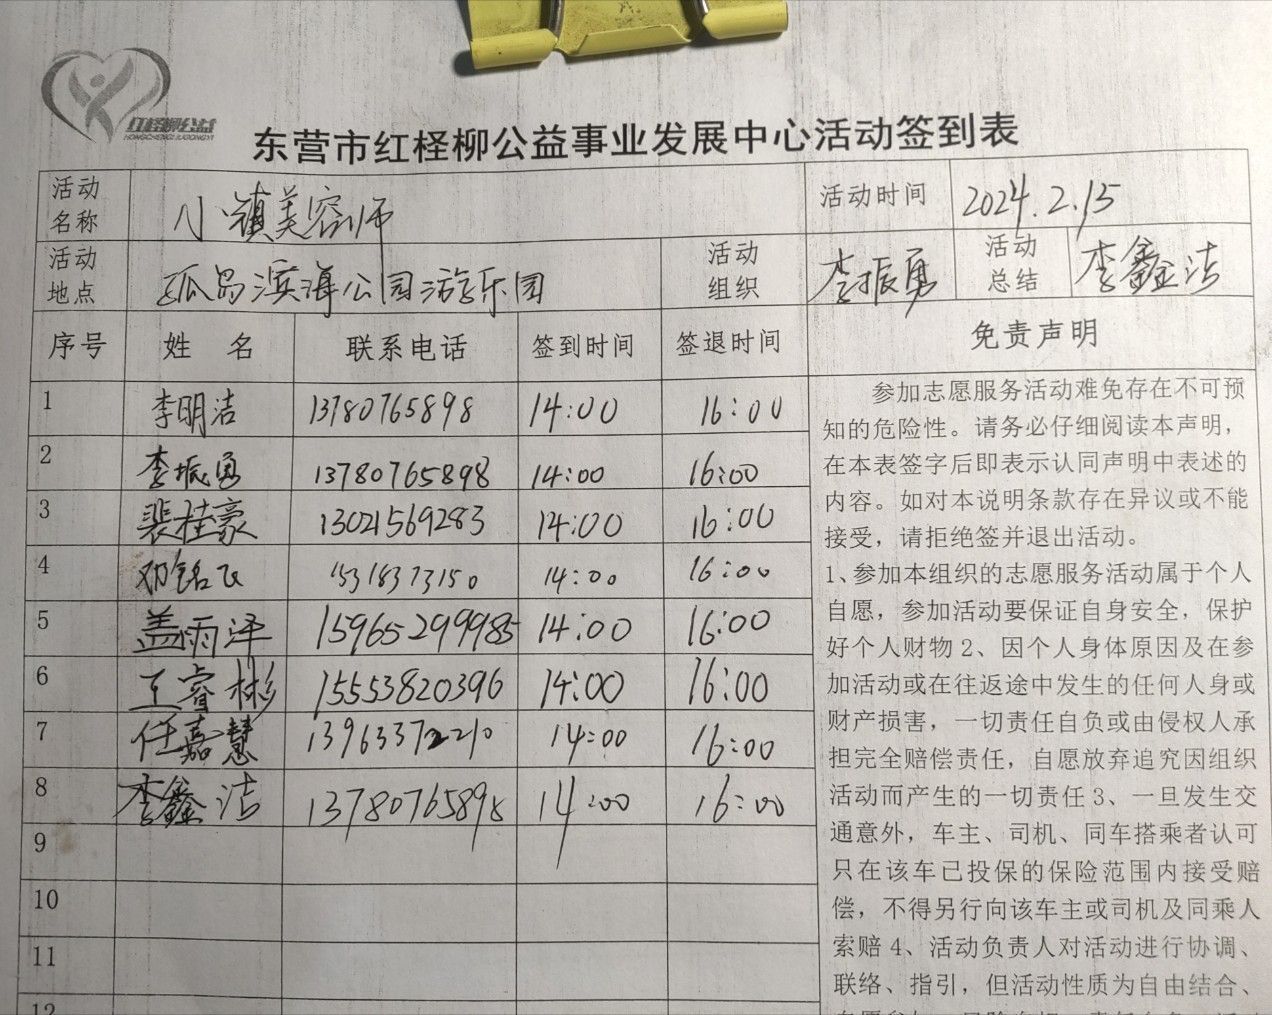 红柽柳公益
HONGCHENGLIUGONGYI
东营市红柽柳公益事业发展中心活动签到表
活动名称 小镇美容师 活动时间 2024.2.15
活动地点 孤岛滨海公园游乐园 活动组织 李振勇 活动总结 李鑫洁
序号 姓 名 联系电话 签到时间 签退时间 免责声明
1 李明洁 13780765898 14:00 16:00
2 李振勇 13780765898 14:00 16:00
3 裴桂豪 13021569283 14:00 16:00
4 邓铭飞 15318373150 14:00 16:00
5 盖雨泽 15965299985 14:00 16:00
6 王睿彬 15553820396 14:00 16:00
7 任嘉慧 13963372210 14:00 16:00
8 李鑫洁 13780765898 14:00 16:00
9
10
11
12
参加志愿服务活动难免存在不可预
知的危险性。请务必仔细阅读本声明，
在本表签字后即表示认同声明中表述的
内容。如对本说明条款存在异议或不能
接受，请拒绝签并退出活动。
1、参加本组织的志愿服务活动属于个人
自愿，参加活动要保证自身安全，保护
好个人财物2、因个人身体原因及在参
加活动或在往返途中发生的任何人身或
财产损害，一切责任自负或由侵权人承
担完全赔偿责任，自愿放弃追究因组织
活动而产生的一切责任3、一旦发生交
通意外，车主、司机、同车搭乘者认可
只在该车已投保的保险范围内接受赔
偿，不得另行向该车主或司机及同乘人
索赔4、活动负责人对活动进行协调、
联络、指引，但活动性质为自由结合、